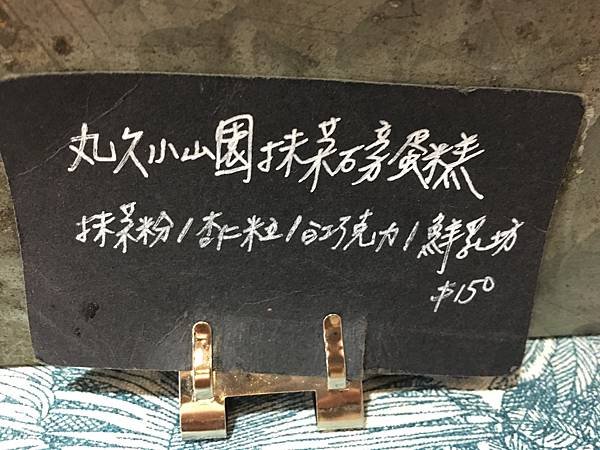 丸久小山園抹茶磅蛋糕
抹茶粉/杏仁粒/白巧克力/鮮乳坊
$150